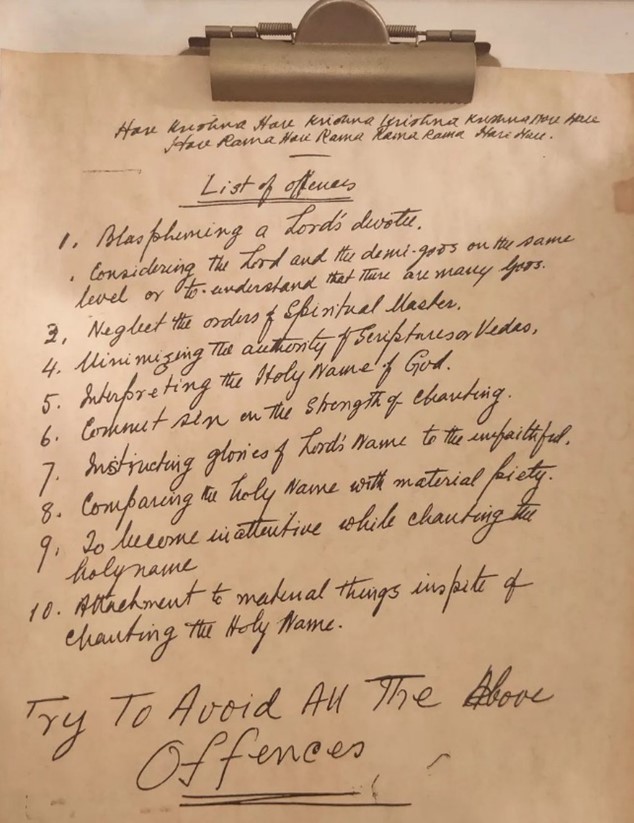 Hare Krishna Hare Krishna Krishna Krishna Hare Hare
Hare Rama Hare Rama Rama Rama Hare Hare.
List of offences
1. Blaspheming a Lord's devotee.
. Considering the Lord and the demi-gods on the same
level or to understand that there are many Gods.
3. Neglect the orders of Spiritual Master.
4. Minimizing the authority of Scriptures or Vedas.
5. Interpreting the Holy Name of God.
6. Commit sin on the Strength of chanting.
7. Instructing glories of Lord's Name to the unfaithful.
8. Comparing the holy Name with material piety.
9. To become inattentive while chanting the
holy name
10. Attachment to material things inspite of
chanting the Holy Name.
Try To Avoid All The Above
Offences